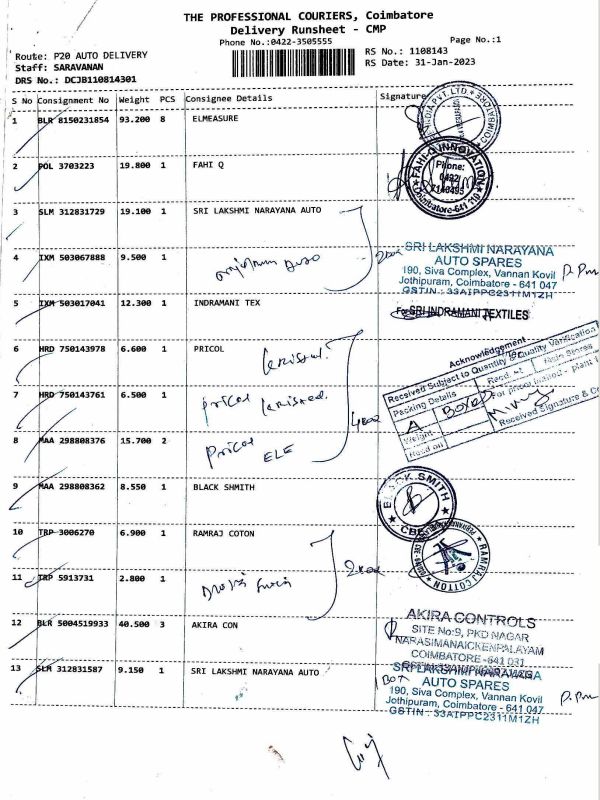 THE PROFESSIONAL COURIERS, Coimbatore
Delivery Runsheet - CMP
Phone No.:0422-3505555
Page No.:1
Route: P20 AUTO DELIVERY
RS No.: 1108143
Staff: SARAVANAN
RS Date: 31-Jan-2023
DRS No.: DCJB110814301
S No Consignment No Weight PCS Consignee Details Signature
1 BLR 8150231854 93.200 8 ELMEASURE
2 POL 3703223 19.800 1 FAHI Q
FAHI-Q INNOVATION
Phone:
0422
7140495
Coimbatore-641 110
3 SLM 312831729 19.100 1 SRI LAKSHMI NARAYANA AUTO
4 IXM 503067888 9.500 1
SRI LAKSHMI NARAYANA
AUTO SPARES
190, Siva Complex, Vannan Kovil
Jothipuram, Coimbatore - 641 047
GSTIN : 33AIPPC2311M1ZH
5 IXM 503017041 12.300 1 INDRAMANI TEX
For SRI INDRAMANI TEXTILES
6 HRD 750143978 6.600 1 PRICOL
7 HRD 750143761 6.500 1 pricol
8 MAA 298808376 15.700 2 pricol ELE
Acknowledgement
Received Subject to Quantity & Quality Verification
Packing Details
Recd. at
Main Stores
A
BOXES
For pricol limited - plant I
Weight
Recd on
Received Signature & C
9 MAA 298808362 8.550 1 BLACK SHMITH
BLACK SMITH
CBE
10 TRP 3006270 6.900 1 RAMRAJ COTON
RAMRAJ COTTON
11 TRP 5913731 2.800 1
12 BLR 5004519933 40.500 3 AKIRA CON
AKIRA CONTROLS
SITE No:9, PKD NAGAR
NARASIMANAICKENPALAYAM
COIMBATORE -641 031
13 SLM 312831587 9.150 1 SRI LAKSHMI NARAYANA AUTO
SRI LAKSHMI NARAYANA
AUTO SPARES
190, Siva Complex, Vannan Kovil
Jothipuram, Coimbatore - 641 047
GSTIN : 33AIPPC2311M1ZH